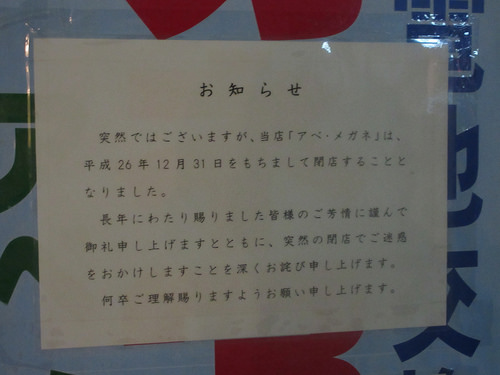 お知らせ
突然ではございますが、当店「アベ・メガネ」は、
平成26年12月31日をもちまして閉店することと
なりました。
長年にわたり賜りました皆様のご芳情に謹んで
御礼申し上げますとともに、突然の閉店でご迷惑
をおかけしますことを深くお詫び申し上げます。
何卒ご理解賜りますようお願い申し上げます。
電池交換